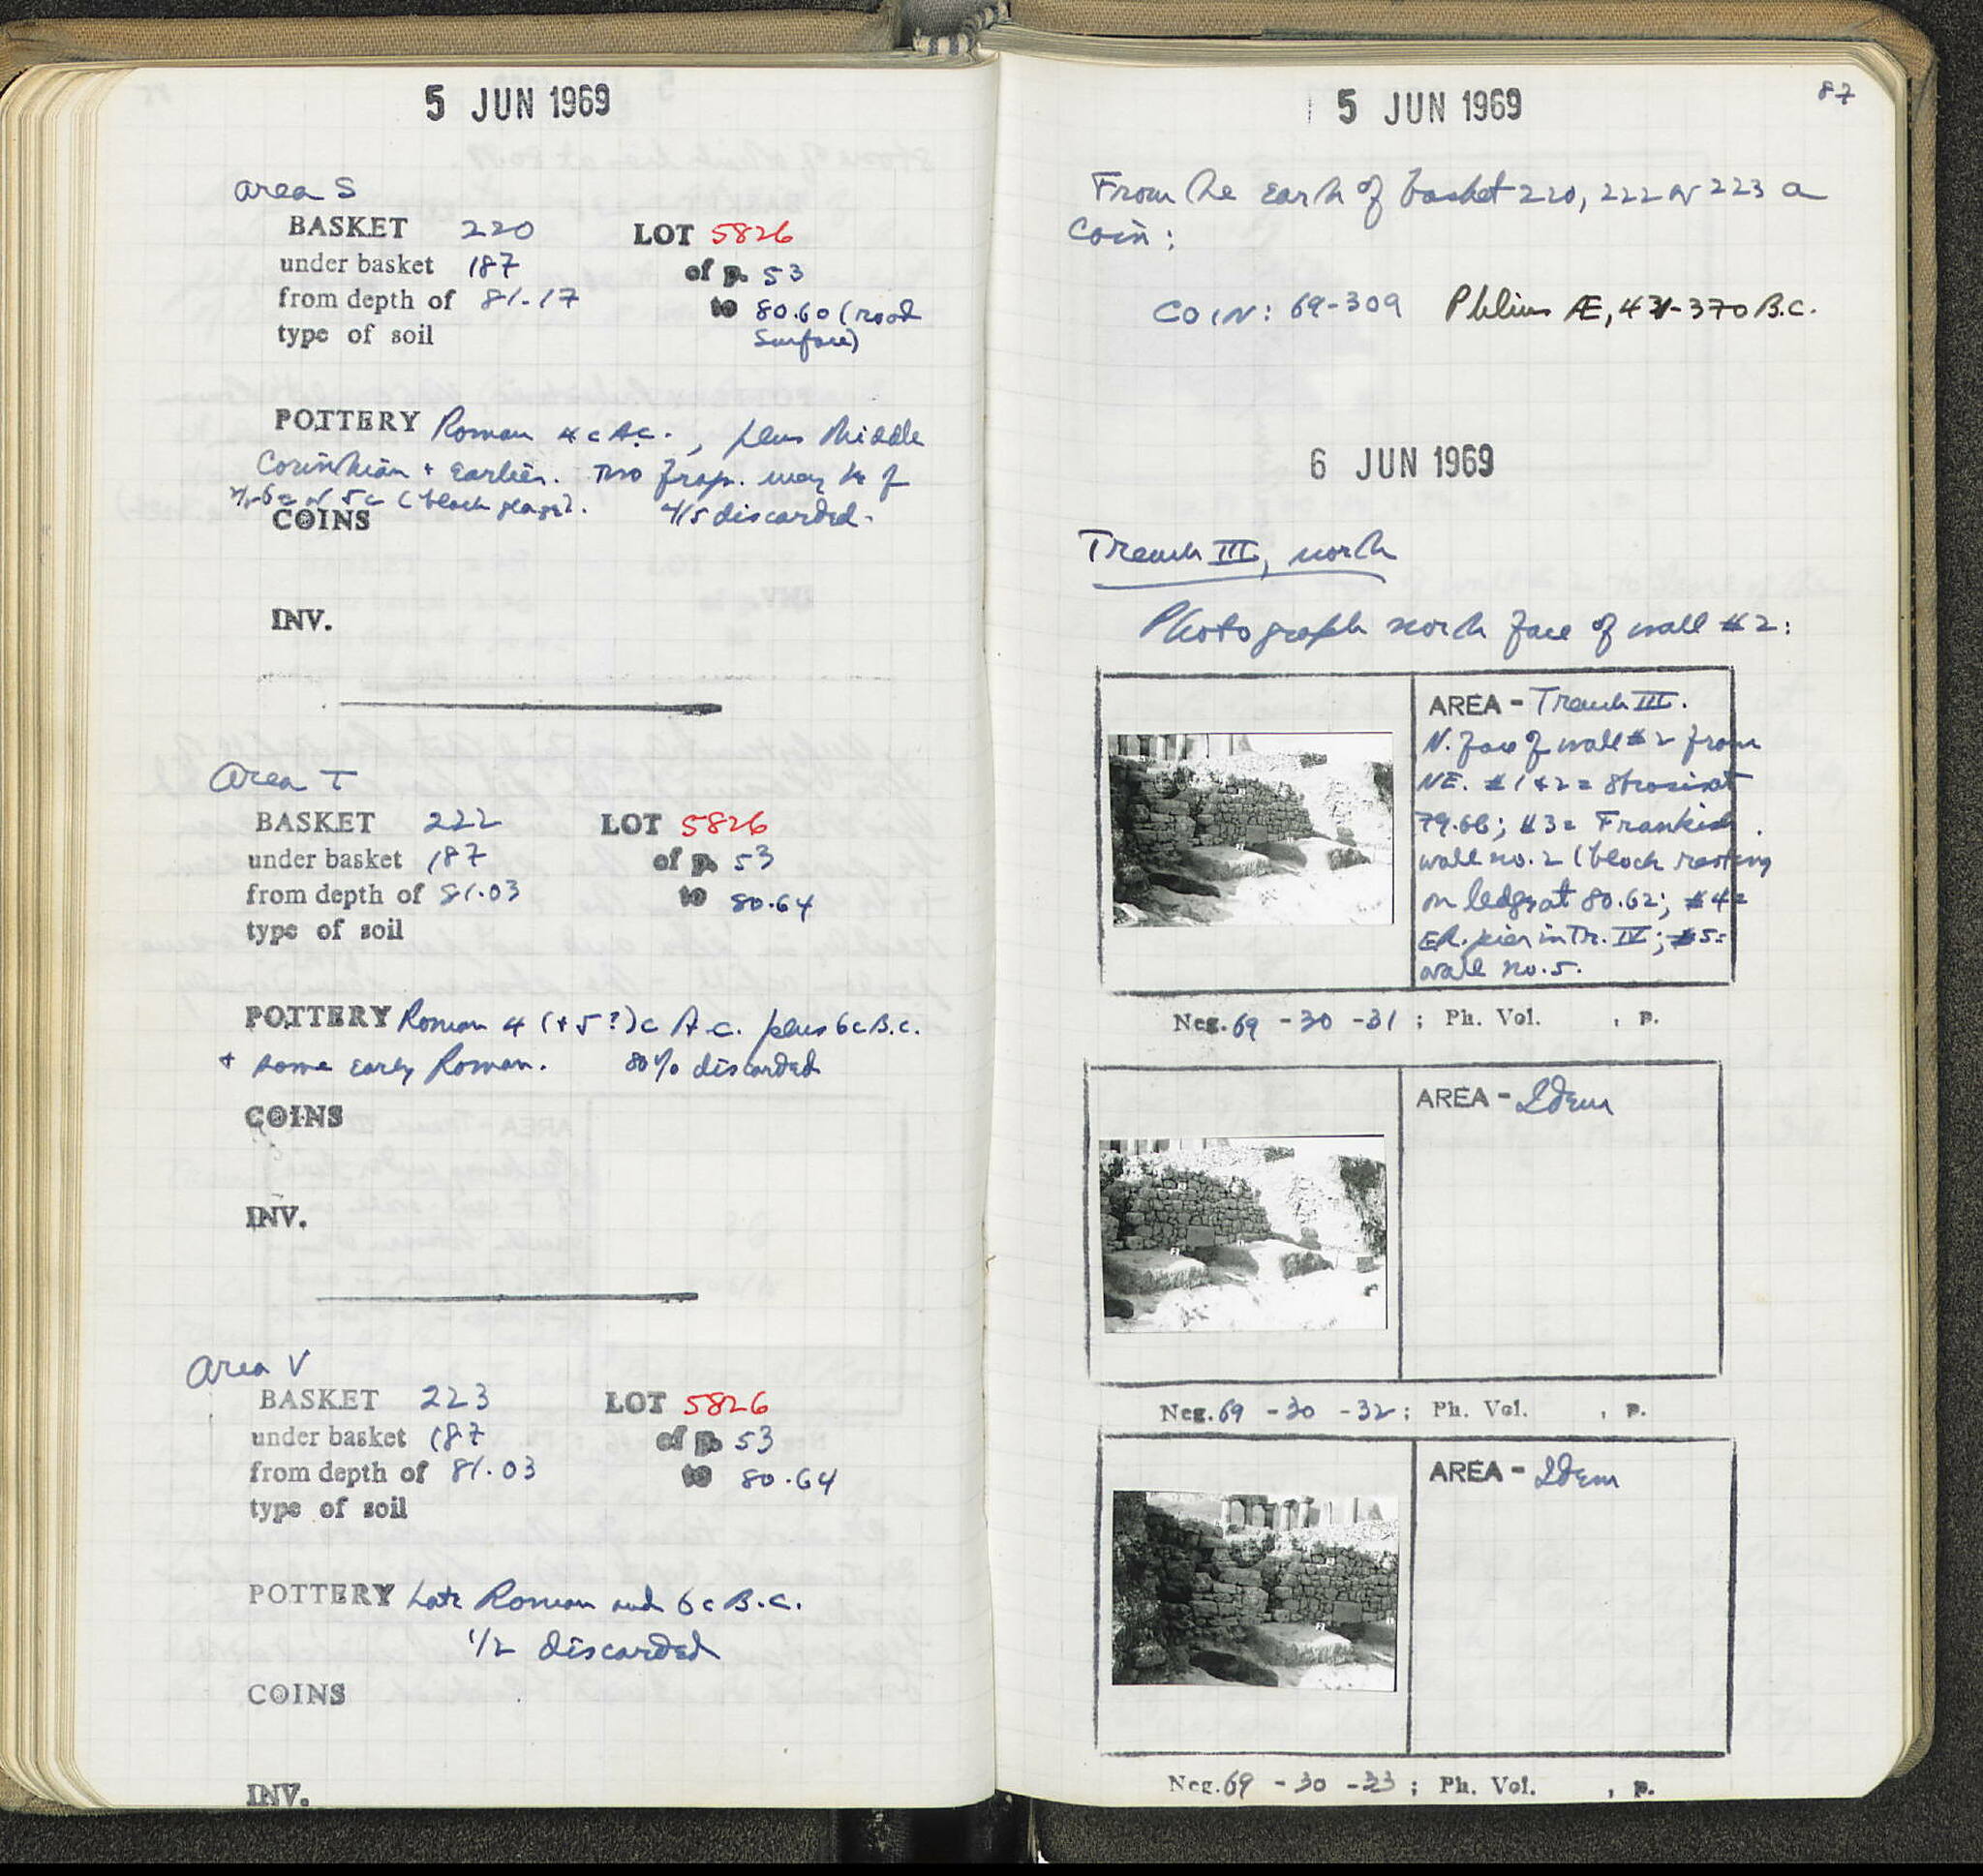 5 JUN 1969
area S
BASKET 220 LOT 5826
under basket 187 of p. 53
from depth of 81.17 to 80.60 (road
type of soil surface)
POTTERY Roman 4 c A.C., plus Middle
Corinthian + Earlier. Two frags. may be of
6c or 5c (black glaze). 4/5 discarded.
COINS
INV.
Area T
BASKET 222 LOT 5826
under basket 187 of p. 53
from depth of 81.03 to 80.64
type of soil
POTTERY Roman 4 (+5?)c A.C. plus 6c B.C.
+ some early Roman. 80% discarded
COINS
INV.
Area V
BASKET 223 LOT 5826
under basket 187 of p. 53
from depth of 81.03 to 80.64
type of soil
POTTERY Late Roman and 6c B.C.
1/2 discarded
COINS
INV.
87
5 JUN 1969
From the earth of basket 220, 222 or 223 a
coin:
COIN: 69-309 Phlius Æ, 431-370 B.C.
6 JUN 1969
Trench III, north
Photograph north face of wall #2:
AREA - Trench III.
N. face of wall #2 from
NE. #1+2 =
79.66; #3 = Frankish
wall no. 2 (block resting
on ledge at 80.62; #4 =
ER. pier in Tr. IV; #5 =
wall no. 5.
Neg. 69 - 30 - 31; Ph. Vol. , p.
AREA - Idem
Neg. 69 - 30 - 32; Ph. Vol. , p.
AREA - Idem
Neg. 69 - 30 - 33; Ph. Vol. , p.